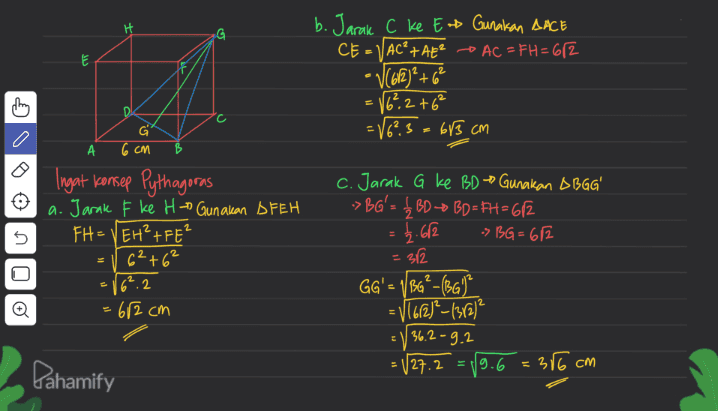 H
G
E
F
D
G'
C
A
6 cm
B
Ingat konsep Pythagoras
a. Jarak F ke H → Gunakan ΔFEH
FH = √EH² + FE²
= √6² + 6²
= √6².2
= 6√2 cm
b. Jarak C ke E → Gunakan ΔACE
CE = √AC² + AE² → AC = FH = 6√2
= √(6√2)² + 6²
= √6².2 + 6²
= √6².3 = 6√3 cm
c. Jarak G ke BD → Gunakan ΔBGG'
-> BG' = ½ BD → BD = FH = 6√2
= ½.6√2 -> BG = 6√2
= 3√2
GG' = √BG² - (BG')²
= √(6√2)² - (3√2)²
= √36.2 - 9.2
= √27.2 = √9.6 = 3√6 cm
Pahamify